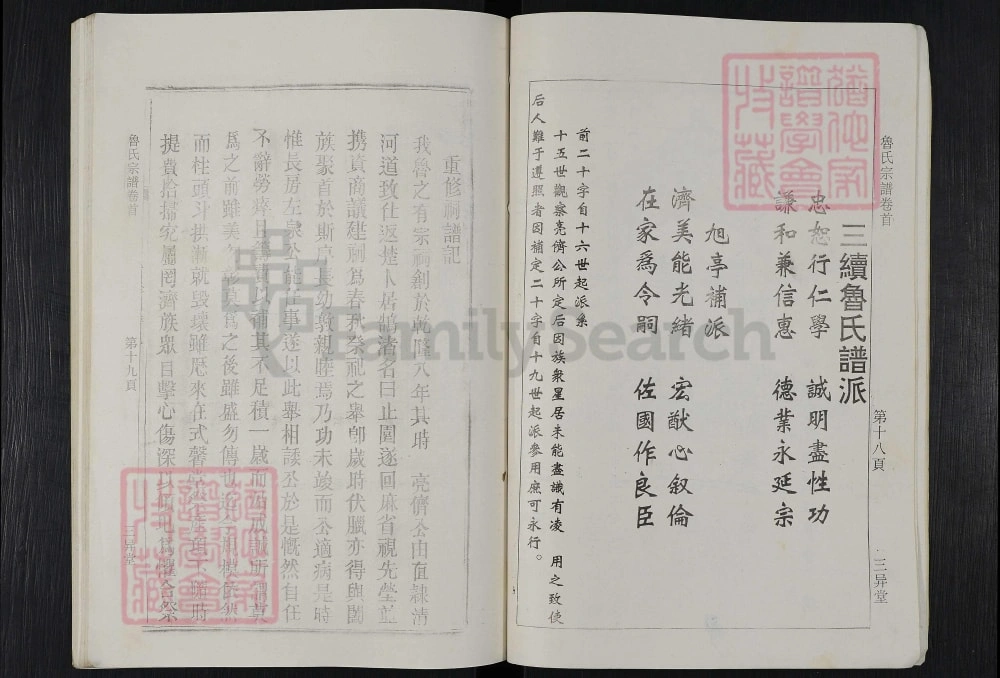 魯氏宗譜卷首
第十八頁
三异堂
三續魯氏譜派
忠恕行仁學 誠明盡性功
謙和兼信惠 德業永延宗
旭亭補派
濟美能光緒 宏猷心叙倫
在家爲令嗣 佐國作良臣
前二十字自十六世起派系
十五世觀察亮儕公所定后因族衆星居未能盡識有凌 用之致使
后人難于遵照者因補定二十字自十九世起派參用庶可永行。
重修祠譜記
我魯之有宗祠創於乾隆八年其時 亮儕公由直隸清
河道致仕返楚卜居鵠渚名曰止園遂回麻省視先塋並
携貲商議建祠爲春秋祭祀之舉卽歲時伏臘亦得與闔
族聚首於斯卓長幼敦親睦焉乃功未竣而公適病是時
惟長房左泉公能任事遂以此舉相諉公於是慨然自任
不辭勞瘁且損貲以補其不足積一歲而告成
爲之前雖美 爲之後雖盛勿傳
而柱頭斗拱漸就毀壞雖歷來在式聲
提貲拾掃究屬罔濟族眾目擊心傷深以
魯氏宗譜卷首
第十九頁
三异堂
譜學會
特藏
FamilySearch